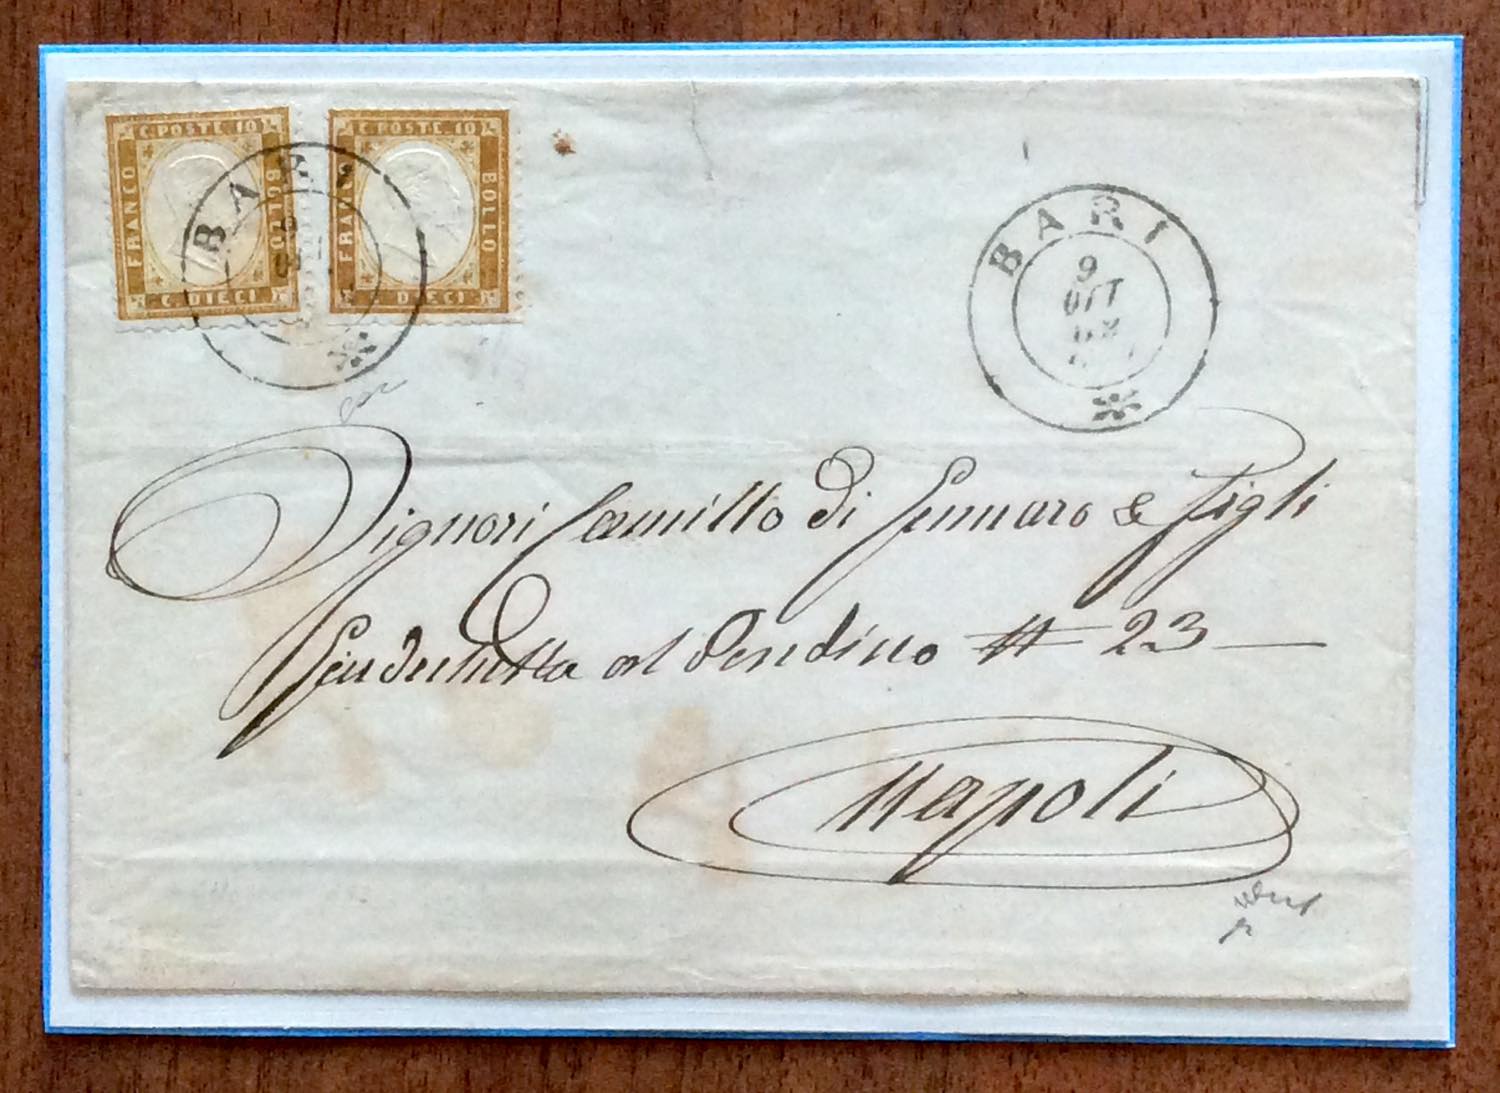 C. POSTE 10 C. POSTE 10
FRANCO BOLLO BOLLO
C. DIECI DIECI
BARI
BARI
9
OTT
Signori Camillo di Gennaro & Figli
al Pendino # 23
Napoli